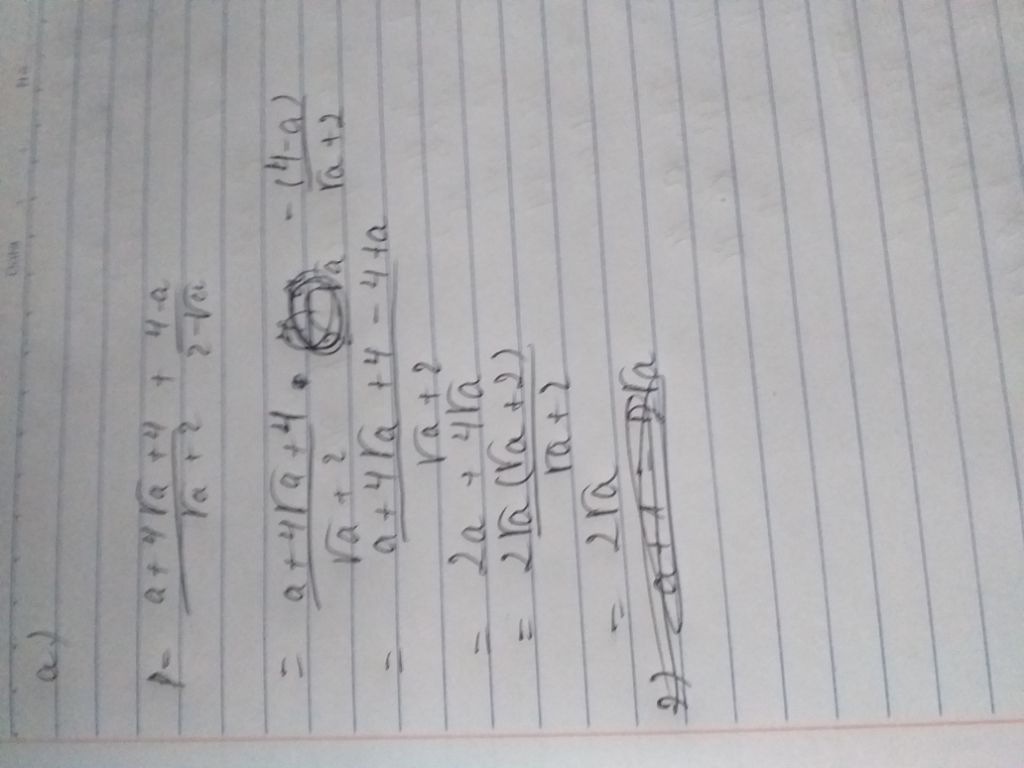 a)
P = a + 4√a + 4 + 4-a
√a + 2 2-√a
= a + 4√a + 4 - (4-a)
√a + 2 √a √a + 2
= a + 4√a + 4 - 4 + a
√a + 2
= 2a + 4√a
= 2√a(√a + 2)
√a + 2
= 2√a
2)